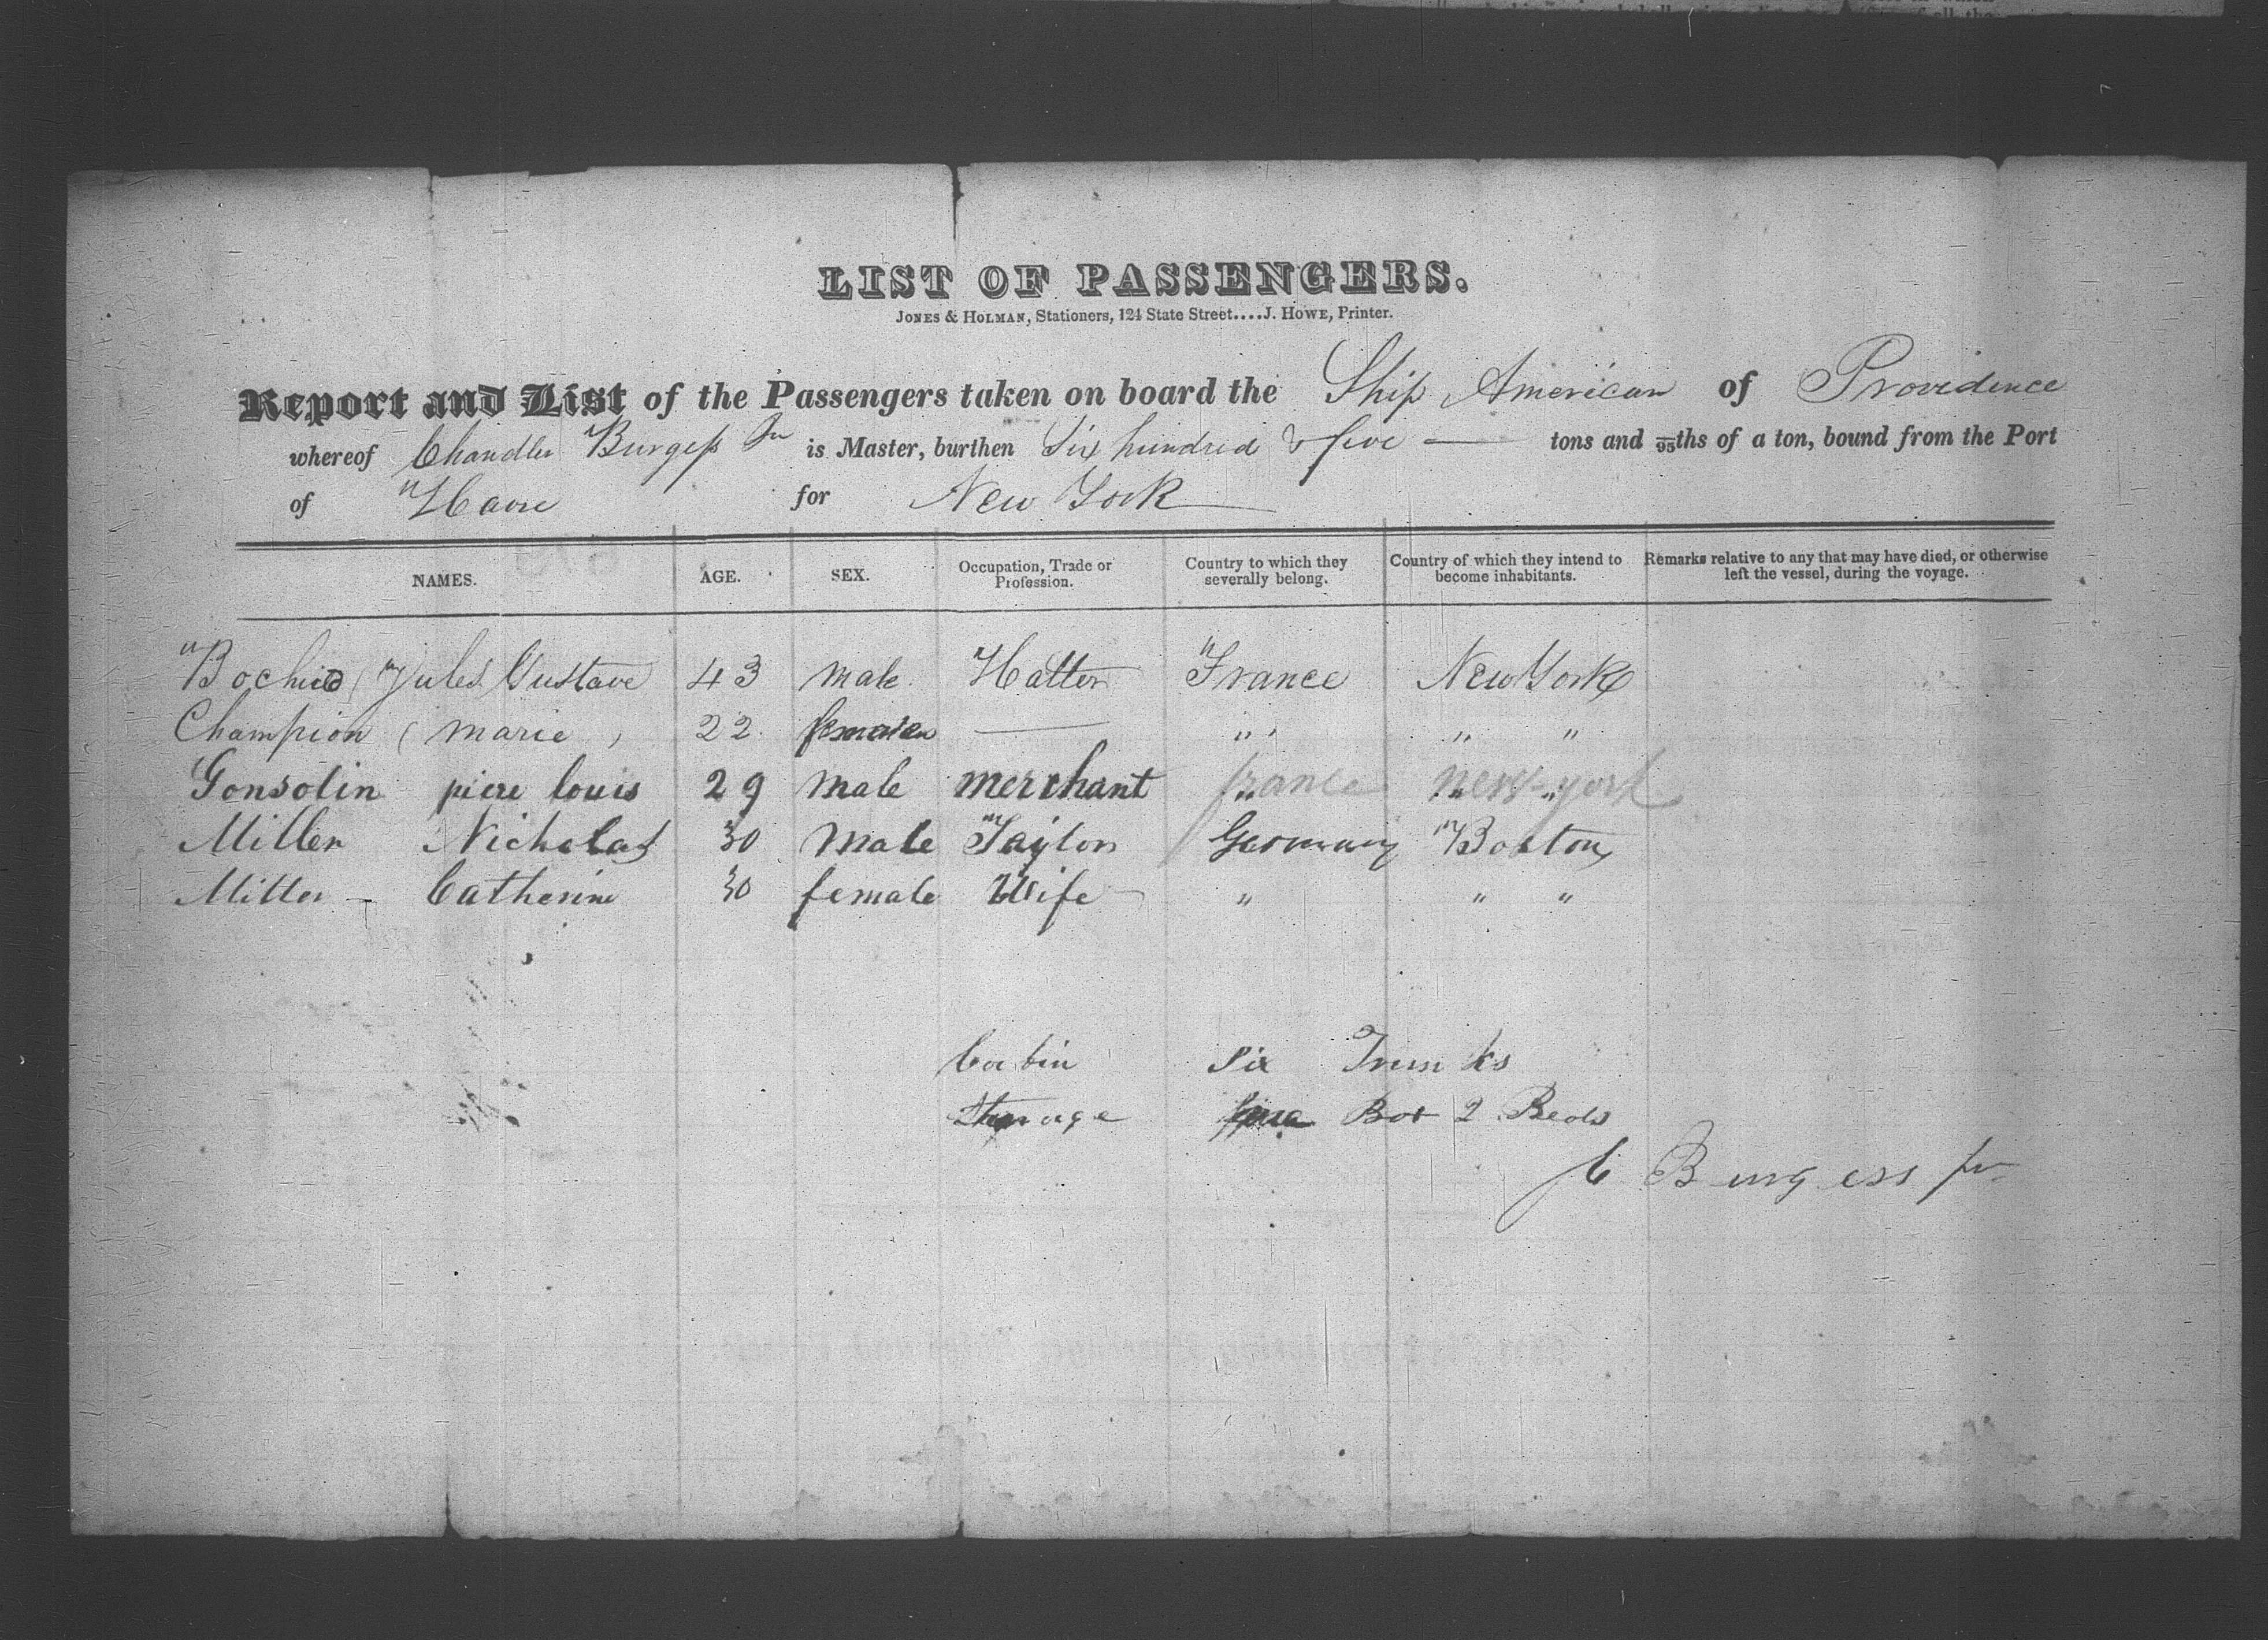 LIST OF PASSENGERS.
JONES & HOLMAN, Stationers, 124 State Street....J. HOWE, Printer.
Report and List of the Passengers taken on board the Ship American of Providence
whereof Chandler Burgess Jr is Master, burthen Six hundred & five — tons and /95ths of a ton, bound from the Port
of Havre for New York
NAMES. AGE. SEX. Occupation, Trade or Profession. Country to which they severally belong. Country of which they intend to become inhabitants. Remarks relative to any that may have died, or otherwise left the vessel, during the voyage.
Jules Gustave 43 male Hatter France New York
Champion ( marie , 22 — " " " "
Gonsolin piere louis 29 male merchant france new-york
Miller Nicholas 30 Male Taylor Germany Boston
Miller - Catherine 30 female Wife " " "
Cabin Six Trunks
Sterage Box 2 Beds
C Burgess Jr